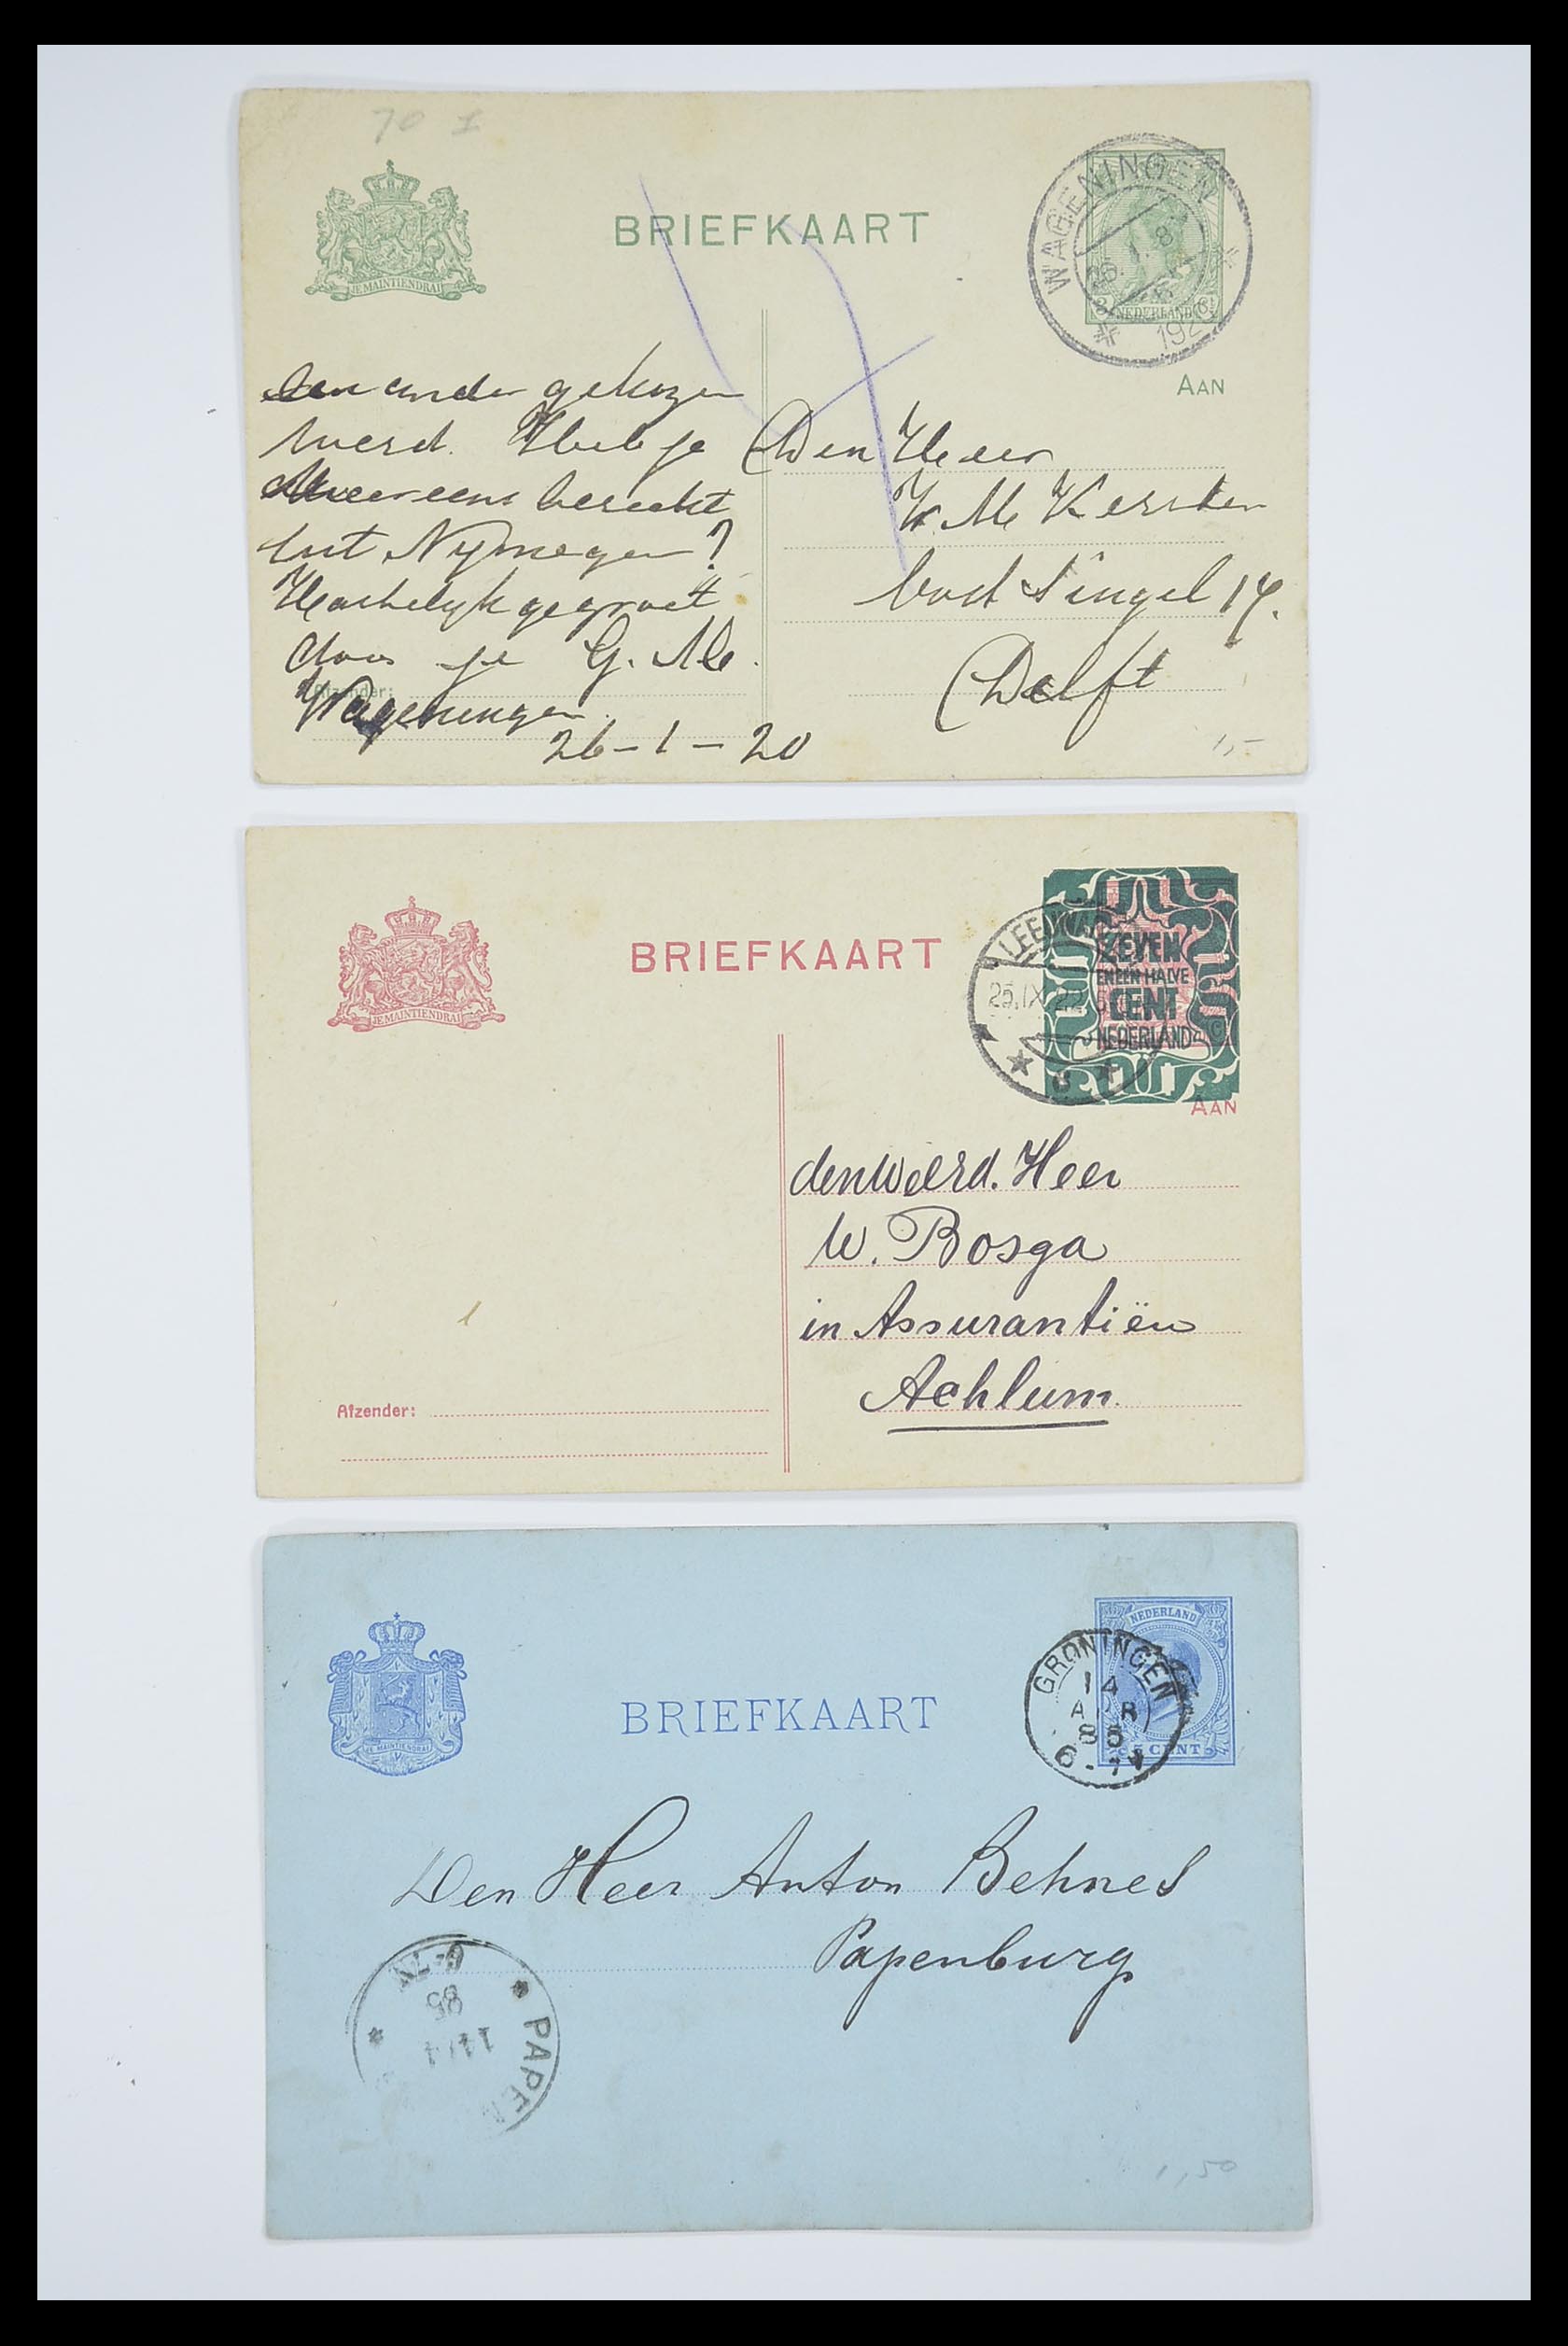 70 I
JE MAINTIENDRAI
BRIEFKAART
WAGENINGEN
26.1. 8
192
NEDERLAND
AAN
een ander gekozen
werd. Heb je
al weer eens bericht
uit Nymegen?
Hartelyk gegroet
door je G. M.
Afzender:
Wageningen.
26-1-20
Den Heer
K. M. Kerster
Oost Singel 14.
Delft
1,-
JE MAINTIENDRAI
BRIEFKAART
LEEUWA
25.IX 22
ZEVEN
EN EEN HALVE
CENT
NEDERLAND
AAN
den WelErd. Heer
W. Bosga
in Assurantiën
Achlum.
Afzender:
JE MAINTIENDRAI
BRIEFKAART
NEDERLAND
5 CENT
GRONINGEN
14
APR
85
6-7
Den Heer Anton Behnes
Papenburg
PAPEN
85
6-7N
1,50